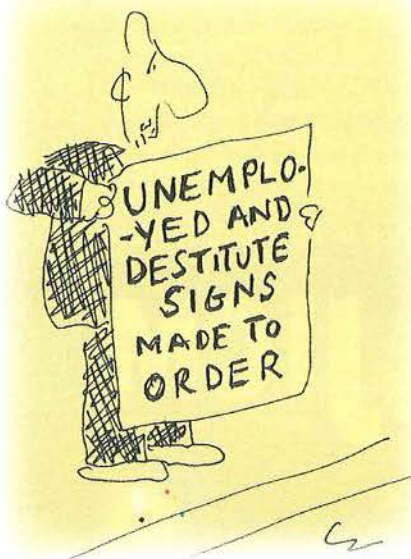 UNEMPLO-
-YED AND
DESTITUTE
SIGNS
MADE TO
ORDER